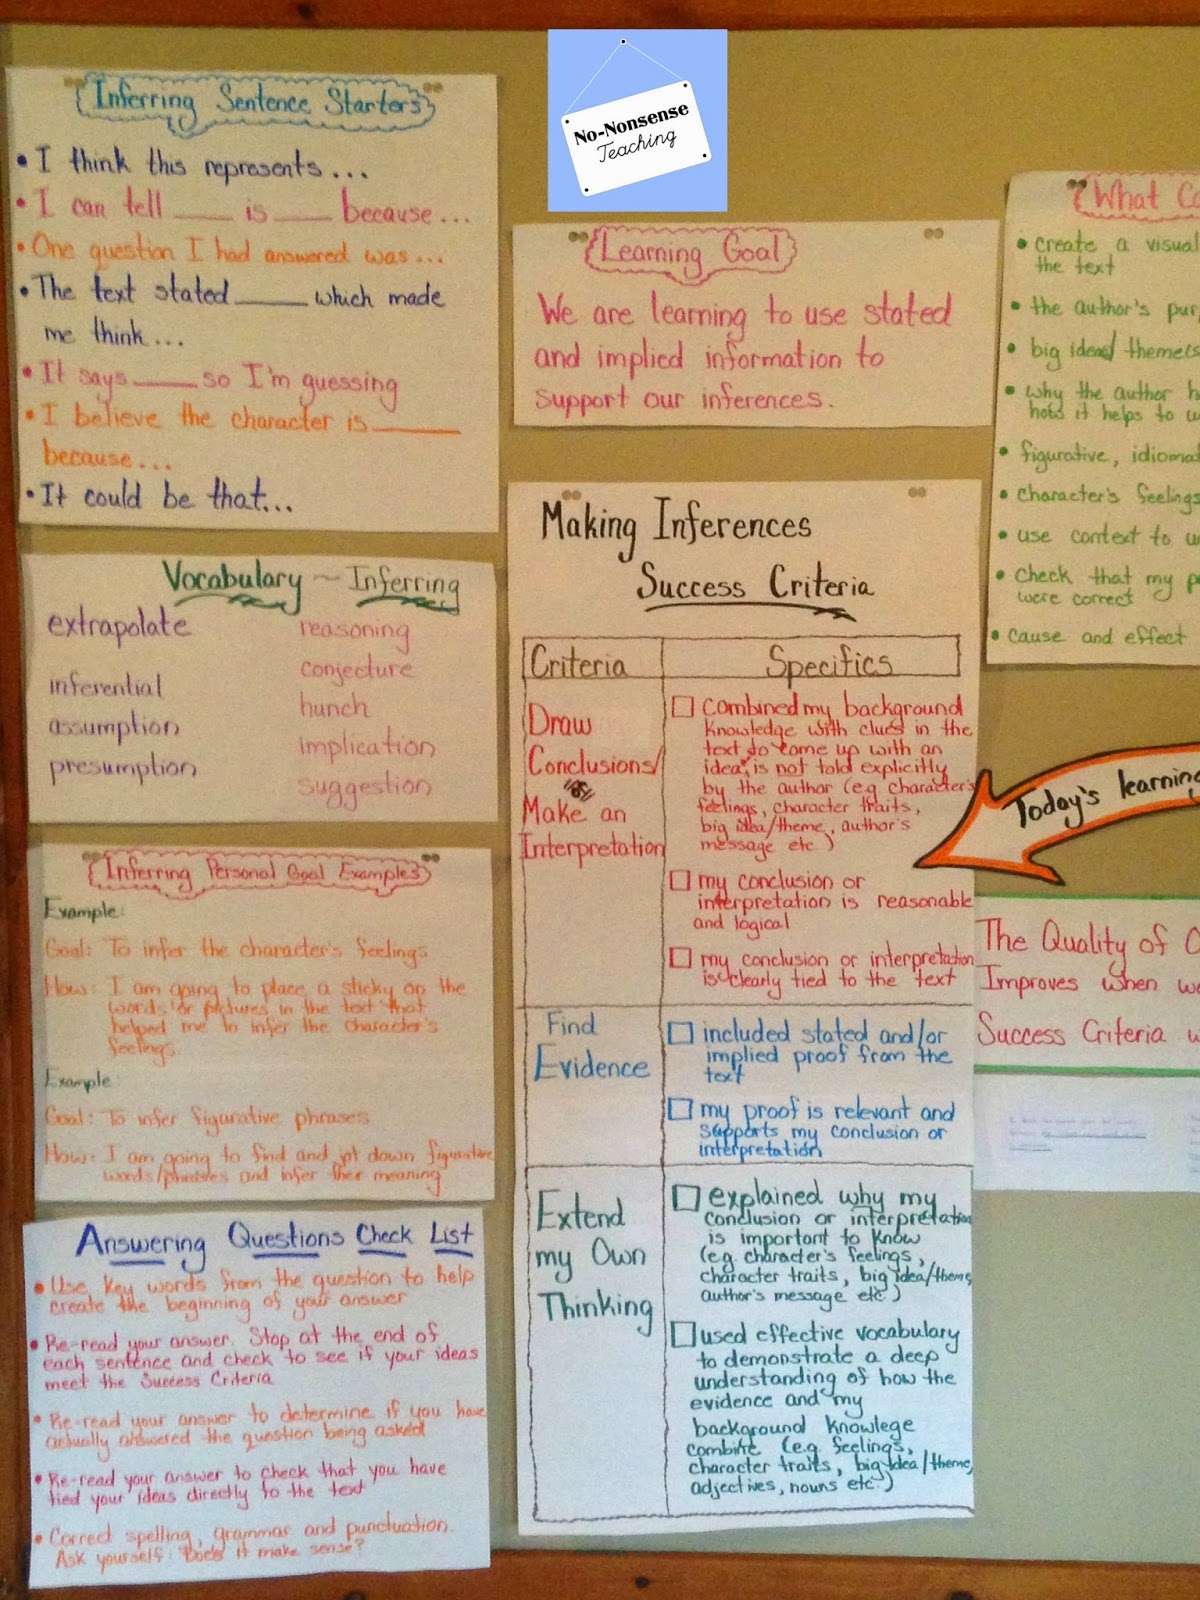 No-Nonsense
Teaching
Inferring Sentence Starters
• I think this represents...
• I can tell ____ is ____ because...
• One question I had answered was...
• The text stated ____ which made
me think...
• It says ____ so I'm guessing
• I believe the character is ____
because...
• It could be that...
Vocabulary ~ Inferring
extrapolate
inferential
assumption
presumption
reasoning
conjecture
hunch
implication
suggestion
Inferring Personal Goal Examples
Example:
Goal: To infer the character's feelings
How: I am going to place a sticky on the
words or pictures in the text that
helped me to infer the character's
feelings.
Example:
Goal: To infer figurative phrases
How: I am going to find and jot down figurative
words/phrases and infer their meaning
Answering Questions Check List
• Use key words from the question to help
create the beginning of your answer
• Re-read your answer. Stop at the end of
each sentence and check to see if your ideas
meet the Success Criteria
• Re-read your answer to determine if you have
actually answered the question being asked
• Re-read your answer to check that you have
tied your ideas directly to the text
• Correct spelling, grammar and punctuation.
Ask yourself: "Does it make sense?
Learning Goal
We are learning to use stated
and implied information to
support our inferences.
Making Inferences
Success Criteria
Criteria
Specifics
Draw
Conclusions/
Make an
Interpretation
combined my background
knowledge with clues in the
text to come up with an
idea is not told explicitly
by the author (e.g. character's
feelings, character traits,
big idea/theme, author's
message etc.)
my conclusion or
interpretation is reasonable
and logical
my conclusion or interpretation
is clearly tied to the text
Find
Evidence
included stated and/or
implied proof from the
text
my proof is relevant and
supports my conclusion or
interpretation
Extend
my Own
Thinking
explained why my
conclusion or interpretation
is important to know
(e.g. character's feelings,
character traits, big idea/theme,
author's message etc.)
used effective vocabulary
to demonstrate a deep
understanding of how the
evidence and my
background knowlege
combine (e.g. feelings,
character traits, big idea/theme,
adjectives, nouns etc.)
What
• create a visual
the text
• the author's
• big ideas/theme(s
• why the author
how it helps to
• figurative,
• character's feelings
• use context to
• check that my
were correct
• cause and effect
Today's learning
The Quality of
Improves when
Success Criteria